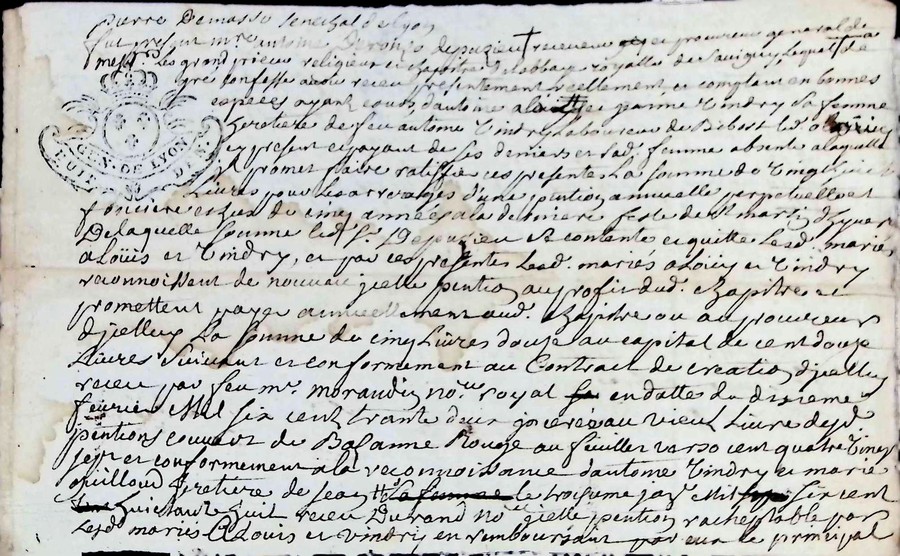 pierre Demasso senechal de lyon
fut present mre antoine Deronzo depuzieu receveur et procureur general de
messrs Les grand prieur religieux et chapitre de Labbaye royalle de Savigny, Lequel de
gré confesse avoir receu presentement reellement, et comptant en bonnes
especes ayant cours, dantoine aloüis et jeanne Vindry sa femme
heretiere de feu antoine Vindry Laboureur de Bibost led. alouis
icy present et payant de ses deniers et lad. femme absente a laquelle
promet faire ratiffier ces presentes La somme de Vingt
Livres pour Les arrerages d'une pention annuelle perpetuelle et
fonciere et eux de cinq années a la derniere feste de st martin d'hyver
De laquelle somme led. Sr. Depuzieu se contente et quitte Lesd. mariés
aLoüis et Vindry, et par ces presentes Lesd. mariés aLoüis et Vindry
reconnoissent de nouveau jcelle pention au profit dud. chapitre et
promettent payer annuellement aud. chapitre ou au procureur
d'jcelluy La somme de cinq Livres douze au capital de cent douze
Livres suivant et conformement au Contract de creation d'jcelluy
receu par feu mre morandin nore royal en datte du dixieme
feuvrier Mil six cent trante deux au vieux Livre desd.
pentions couvert de Bazanne Rouge au feuillet verso cent quatre Vingt
sept et conformement a la reconnoissance dantoine Vindry et marie
ouilloud heretiere de jean le troizieme janr Mil six cent
huictante huit receu Durand nore jcelle pention racheptable par
Lesd. mariés aLouis et vindry en remboursant par eux le principal
GEN. DE LYON